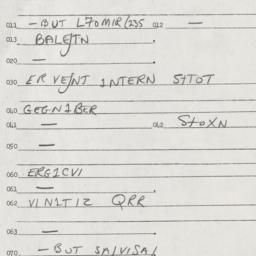 011 — BUT L70MIR/235 012 —
013 BALEJTN
020 —
030 ER VEJNT 1NTERN STTOT
040 GEGN1BER
041 — 042 STOXN
050 —
060 ERG1CVI
061 —
062 VINIT1Z QRR
063 —
070 — BUT SAIVISAI